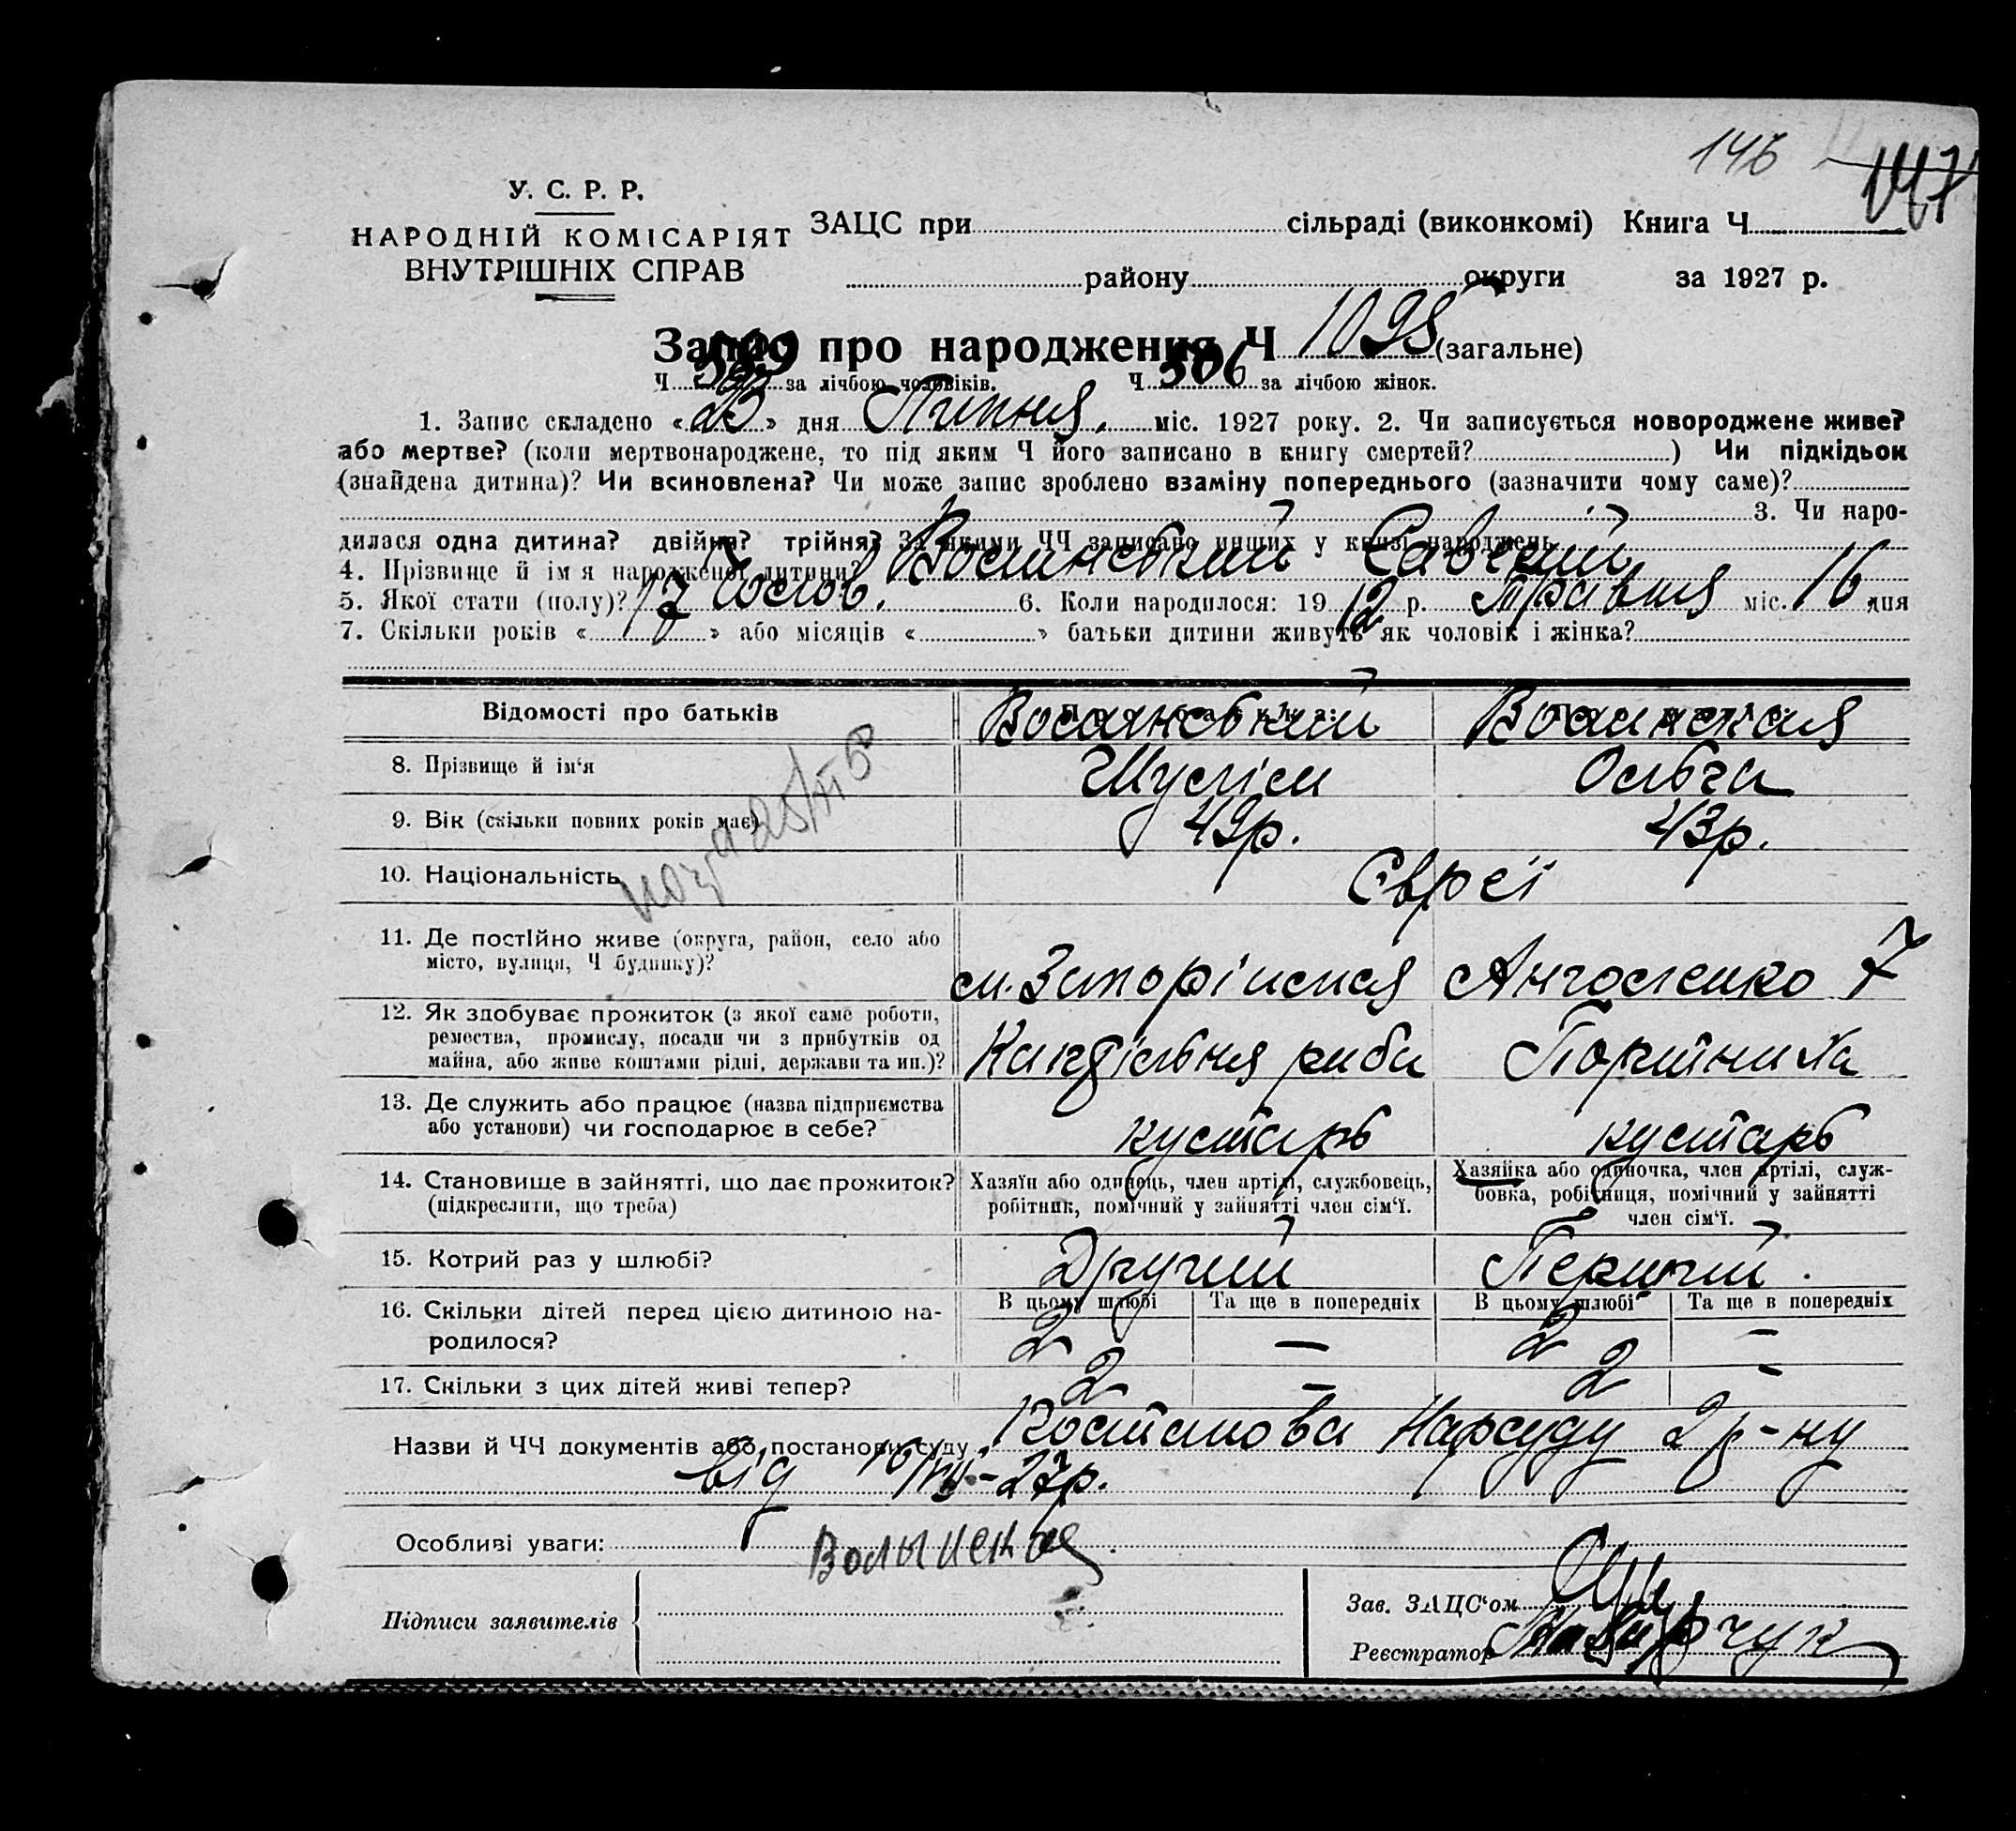 146 147
У. С. Р. Р.
НАРОДНІЙ КОМІСАРІЯТ
ВНУТРІШНІХ СПРАВ
ЗАЦС при сільраді (виконкомі) Книга Ч
району округи за 1927 р.
Запис про народження Ч 1095 (загальне)
Ч 589 за лічбою чоловіків. Ч 506 за лічбою жінок.
1. Запис складено « » дня Липня міс. 1927 року. 2. Чи записується новороджене живе?
або мертве? (коли мертвонароджене, то під яким Ч його записано в книгу смертей? ) Чи підкідьок
(знайдена дитина)? Чи всиновлена? Чи може запис зроблено взаміну попереднього (зазначити чому саме)?
3. Чи наро-
дилася одна дитина? двійня? трійня? За якими ЧЧ записано инших у книзі народжень
4. Прізвище й ім'я народженої дитини? Волинський Савелий
5. Якої стати (полу)? Чолов. 6. Коли народилося: 1912 р. Травня міс. 16 дня
7. Скільки років « 17 » або місяців « » батьки дитини живуть як чоловік і жінка?
Відомості про батьків
8. Прізвище й ім'я Волинський Шулім Волинская Ольга
9. Вік (скільки повних років має) 49р. 43р.
10. Національність Євреї
11. Де постійно живе (округа, район, село або
місто, вулиця, Ч будинку)? 7
12. Як здобуває прожиток (з якої саме роботи,
ремества, промислу, посади чи з прибутків од
майна, або живе коштами рідні, держави та ин.)? риби Портниха
13. Де служить або працює (назва підприємства
або установи) чи господарює в себе? кустарь кустарь
14. Становище в зайнятті, що дає прожиток?
(підкреслити, що треба)
Хазяїн або одинець, член артілі, службовець,
робітник, помічний у зайнятті член сім'ї.
Хазяйка або одиночка, член артілі, служ-
бовка, робітниця, помічний у зайнятті
член сім'ї.
15. Котрий раз у шлюбі? Другий Перший.
В цьому шлюбі Та ще в попередніх В цьому шлюбі Та ще в попередніх
16. Скільки дітей перед цією дитиною на-
родилося? 2 — 2 —
17. Скільки з цих дітей живі тепер? 2 — 2 —
Назви й ЧЧ документів або постанови суду Постанова Нарсуду 2 р-ну
від 16/VII-27р.
Особливі уваги: Волынская
Підписи заявителів
Зав. ЗАЦС'ом
Реєстратор